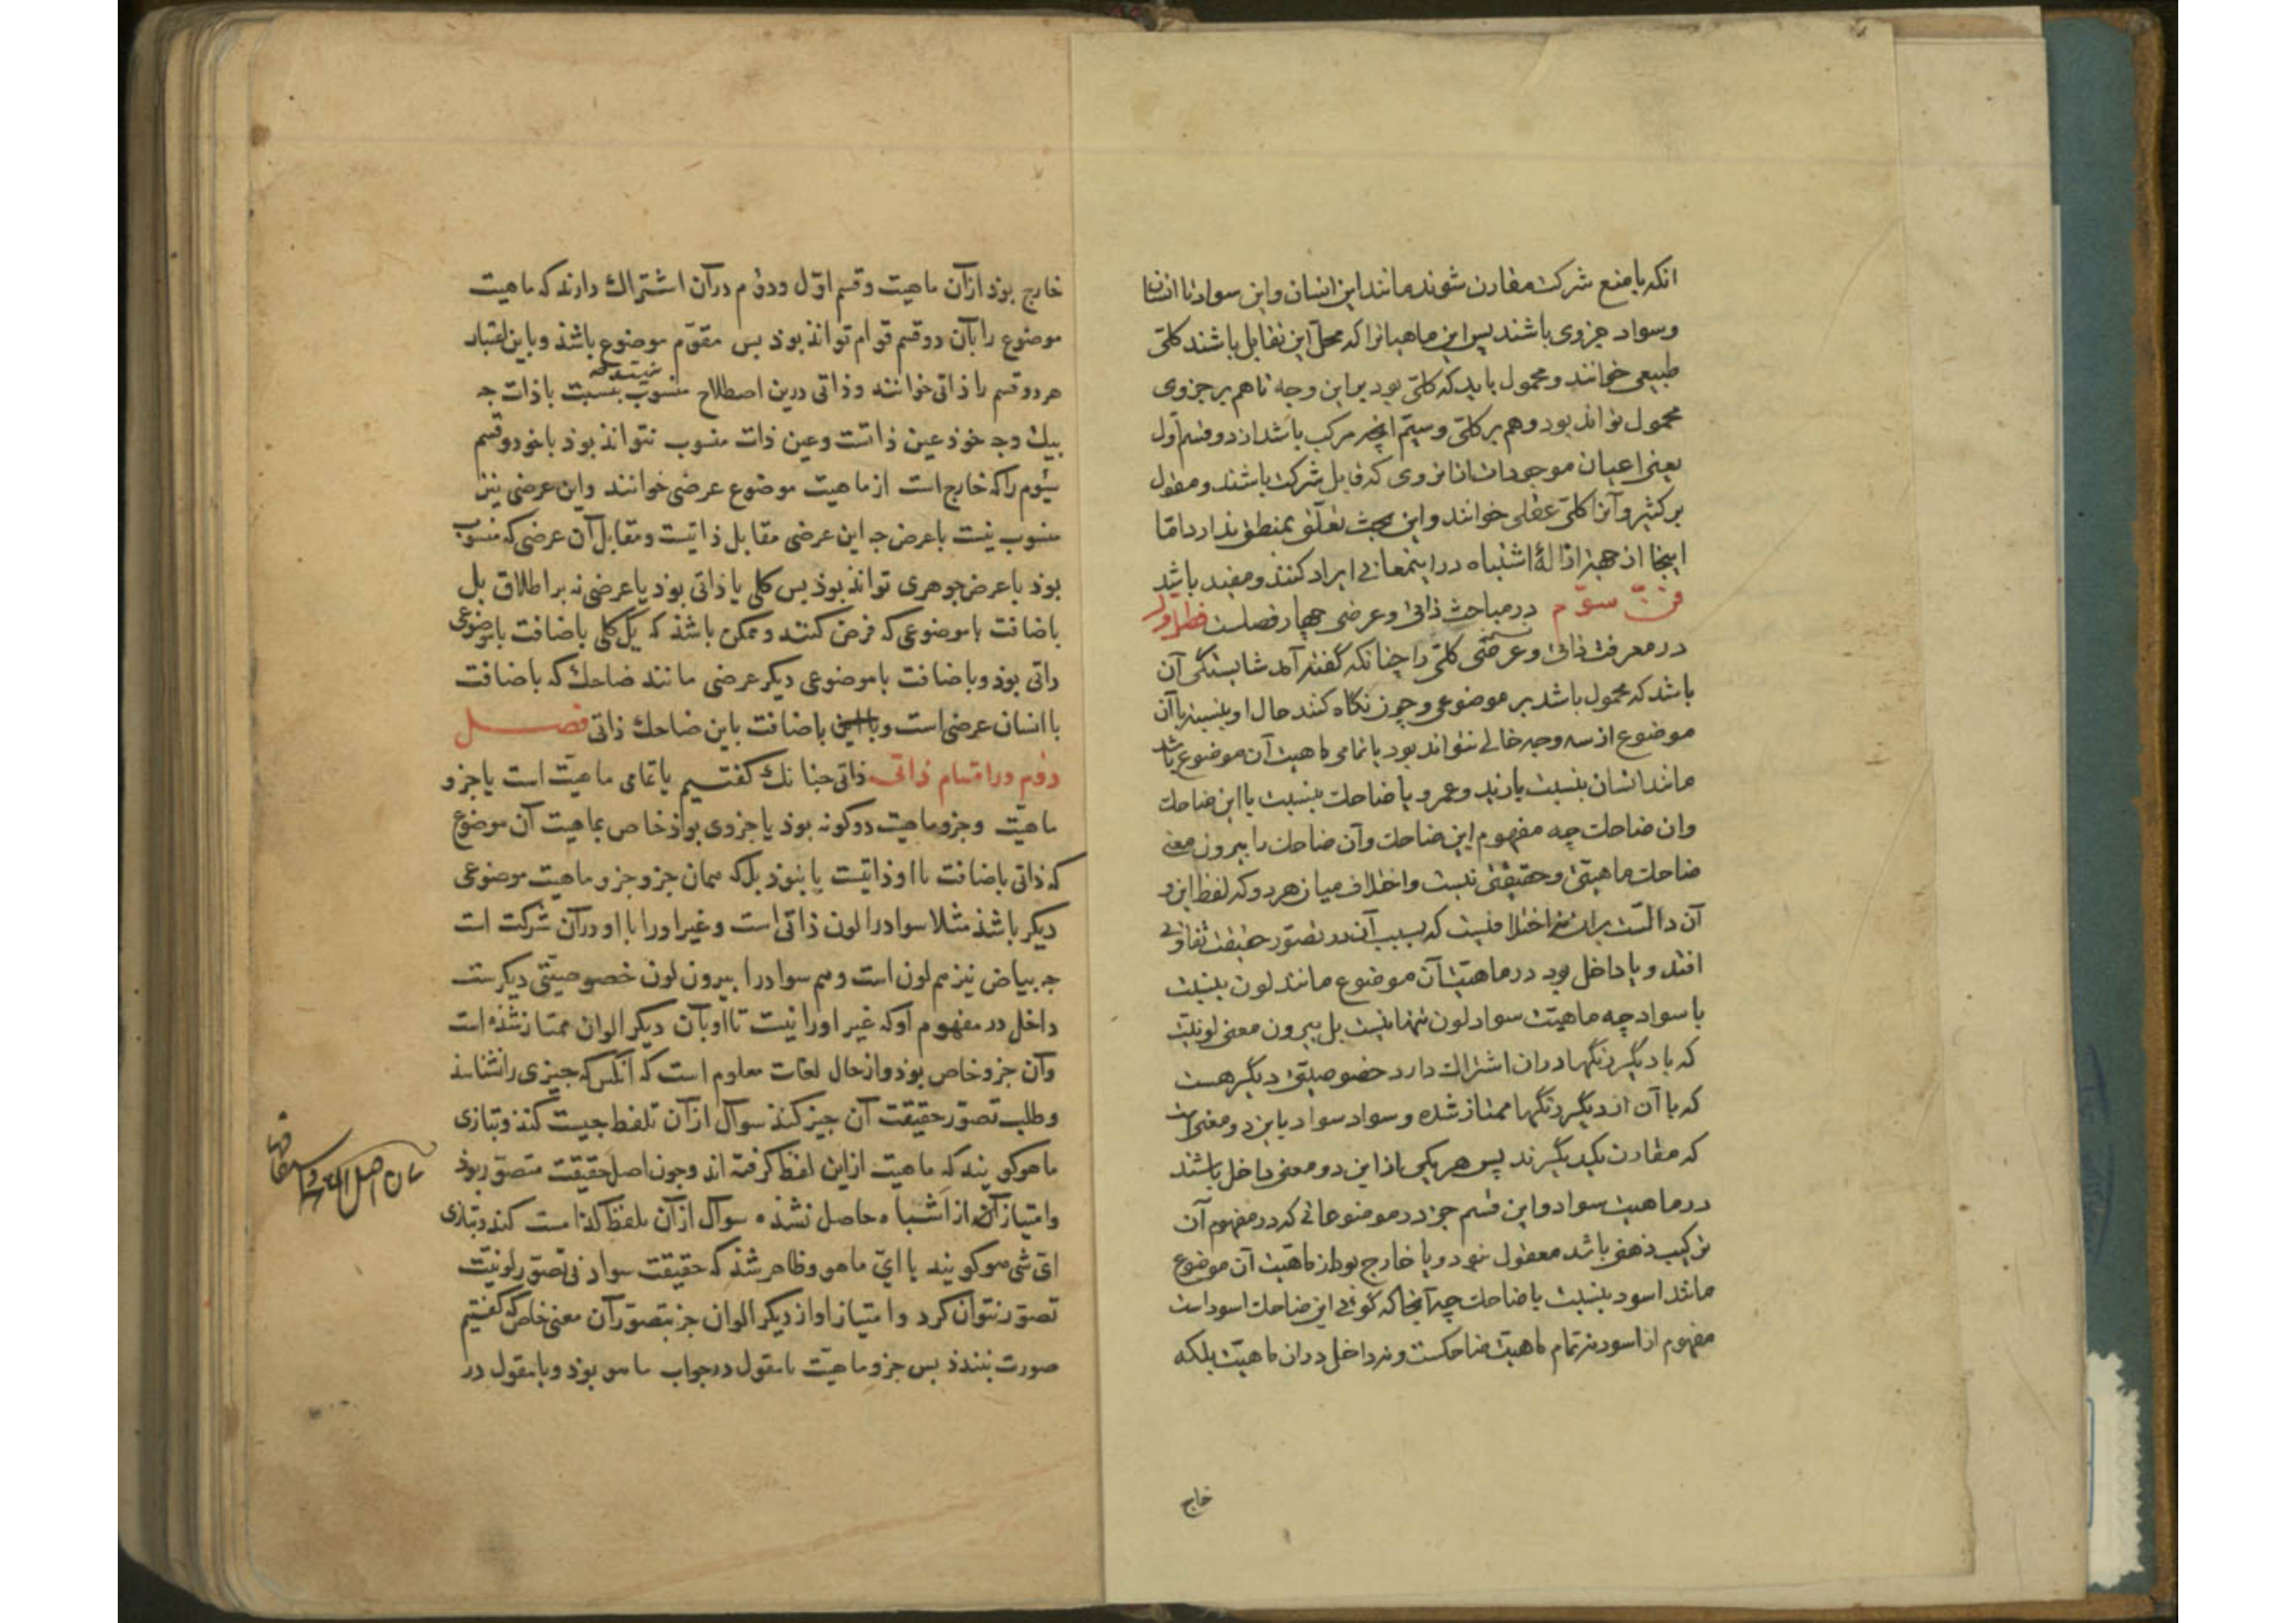 انکه با منع شرکت مقارن شوند مانند این انسان و این سواد تا انسان
و سواد جزوی باشند پس این ماهیاترا که محل این تقابل باشند کلّی
طبیعی خوانند و محمول باید که کلّی بود برین وجه تا هم بر جزوی
محمول تواند بود و هم بر کلّی و سیّم انچه مرکب باشد از دو قسم اول
یعنی اعیان موجودات از آن روی که قابل شرکت باشند و مقول
بر کثیر و آنرا کلّی عقلی خوانند و این بحث تعلّق بمنطق ندارد امّا
اینجا از جهة ازالهٔ اشتباه در این معانی ایراد کنند و مفید باشد
فنّ سوّم در مباحث ذاتی و عرضی چهار فصلست فصل اول
در معرفت ذاتی و عرضی کلّی را چنانکه گفته آمد شایستگی آن
باشد که محمول باشد بر موضوعی و چون نگاه کنند حال او بنسبت با آن
موضوع از سه وجه خالی نتواند بود یا تمامی ماهیت آن موضوع باشد
مانند انسان بنسبت با زید و عمرو یا ضاحک بنسبت با این ضاحک
و ان ضاحک چه مفهوم این ضاحک و آن ضاحک را بیرون معنی
ضاحک ماهیتی و حقیقتی نیست و اختلاف میان هر دو که لفظ این و
آن دالّست بران اختلافیست که بسبب آن در تصوّر حقیقت تفاوتی
افتد و یا داخل بود در ماهیّت آن موضوع مانند لون بنسبت
با سواد چه ماهیّت سواد لون تنها نیست بل بیرون معنی لونیّت
که با دیگر رنگها دران اشتراک دارد خصوصیّتی دیگر هست
که با آن از دیگر رنگها ممتاز شده و سواد سواد باین دو معنی است
که مقارن یکدیگرند پس هر یکی از این دو معنی داخل باشند
در ماهیت سواد و این قسم جز در موضوعاتی که در مفهوم آن
ترکیب ذهنی باشد معقول نبود و یا خارج بود از ماهیّت آن موضوع
مانند اسود بنسبت با ضاحک چه آنجا که گوئی این ضاحک اسود است
مفهوم از اسود نه تمام ماهیّت ضاحکست و نه داخل دران ماهیّت بلکه
خارج
خارج بوذ از آن ماهیت و قسم اوّل و دوّم در آن اشتراک دارند که ماهیت
موضوع را بآن دو قسم قوام تواند بوذ بس مقوّم موضوع باشذ و باین اعتبار
هر دو قسم را ذاتی خوانند و ذاتی درین اصطلاح منسوب نیست با ذات جه
بیک وجه خوذ عین ذاتست و عین ذات منسوب نتواند بوذ با خوذ و قسم
سیّوم را که خارج است از ماهیت موضوع عرضی خوانند و این عرضی نیز
منسوب نیست با عرض جه این عرضی مقابل ذاتیست و مقابل آن عرضی که منسوب
بوذ با عرض جوهری تواند بوذ بس کلی یا ذاتی بوذ یا عرضی نه بر اطلاق بل
باضافت با موضوعی که فرض کنند و ممکن باشذ که یک کلی باضافت با موضوعی
ذاتی بوذ و باضافت با موضوعی دیکر عرضی مانند ضاحک که باضافت
با انسان عرضی است و باضافت باین ضاحک ذاتی فصل
دوم در اقسام ذاتی ذاتی جنانک کفتیم یا تمامی ماهیّت است یا جزو
ماهیّت و جزو ماهیت دو کونه بوذ یا جزوی بوذ خاص بماهیت آن موضوع
که ذاتی باضافت با او ذاتیست یا نبوذ بلکه همان جزو جزو ماهیت موضوعی
دیکر باشذ مثلا سواد را لون ذاتی است و غیر او را با او در آن شرکت است
جه بیاض نیز هم لون است و هم سواد را بیرون لون خصوصیّتی دیکرست
داخل در مفهوم او که غیر او را نیست تا او بآن دیکر الوان ممتاز شذه است
و آن جزو خاص بوذ و از حال لغات معلوم است که آنکس که جیزی را نشناسذ
و طلب تصوّر حقیقت آن جیز کند سوآل از آن بلفظ جیست کنذ و بتازی
ما هو کویند که ماهیت از این لفظ کرفته اند و جون اصل حقیقت متصوّر بوذ
و امتیاز آن از اشباه حاصل نشذه سوآل از آن بلفظ کذامست کند و بتازی
ایّ شی هو کویند یا ایّ ما هو و ظاهر شذ که حقیقت سواد بی تصوّر لونیّت
تصوّر نتوان کرد و امتیاز او از دیکر الوان جز بتصوّر آن معنی خاص که کفتیم
صورت نبندذ بس جزو ماهیّت یا مقول در جواب ما هو بوذ و یا مقول در